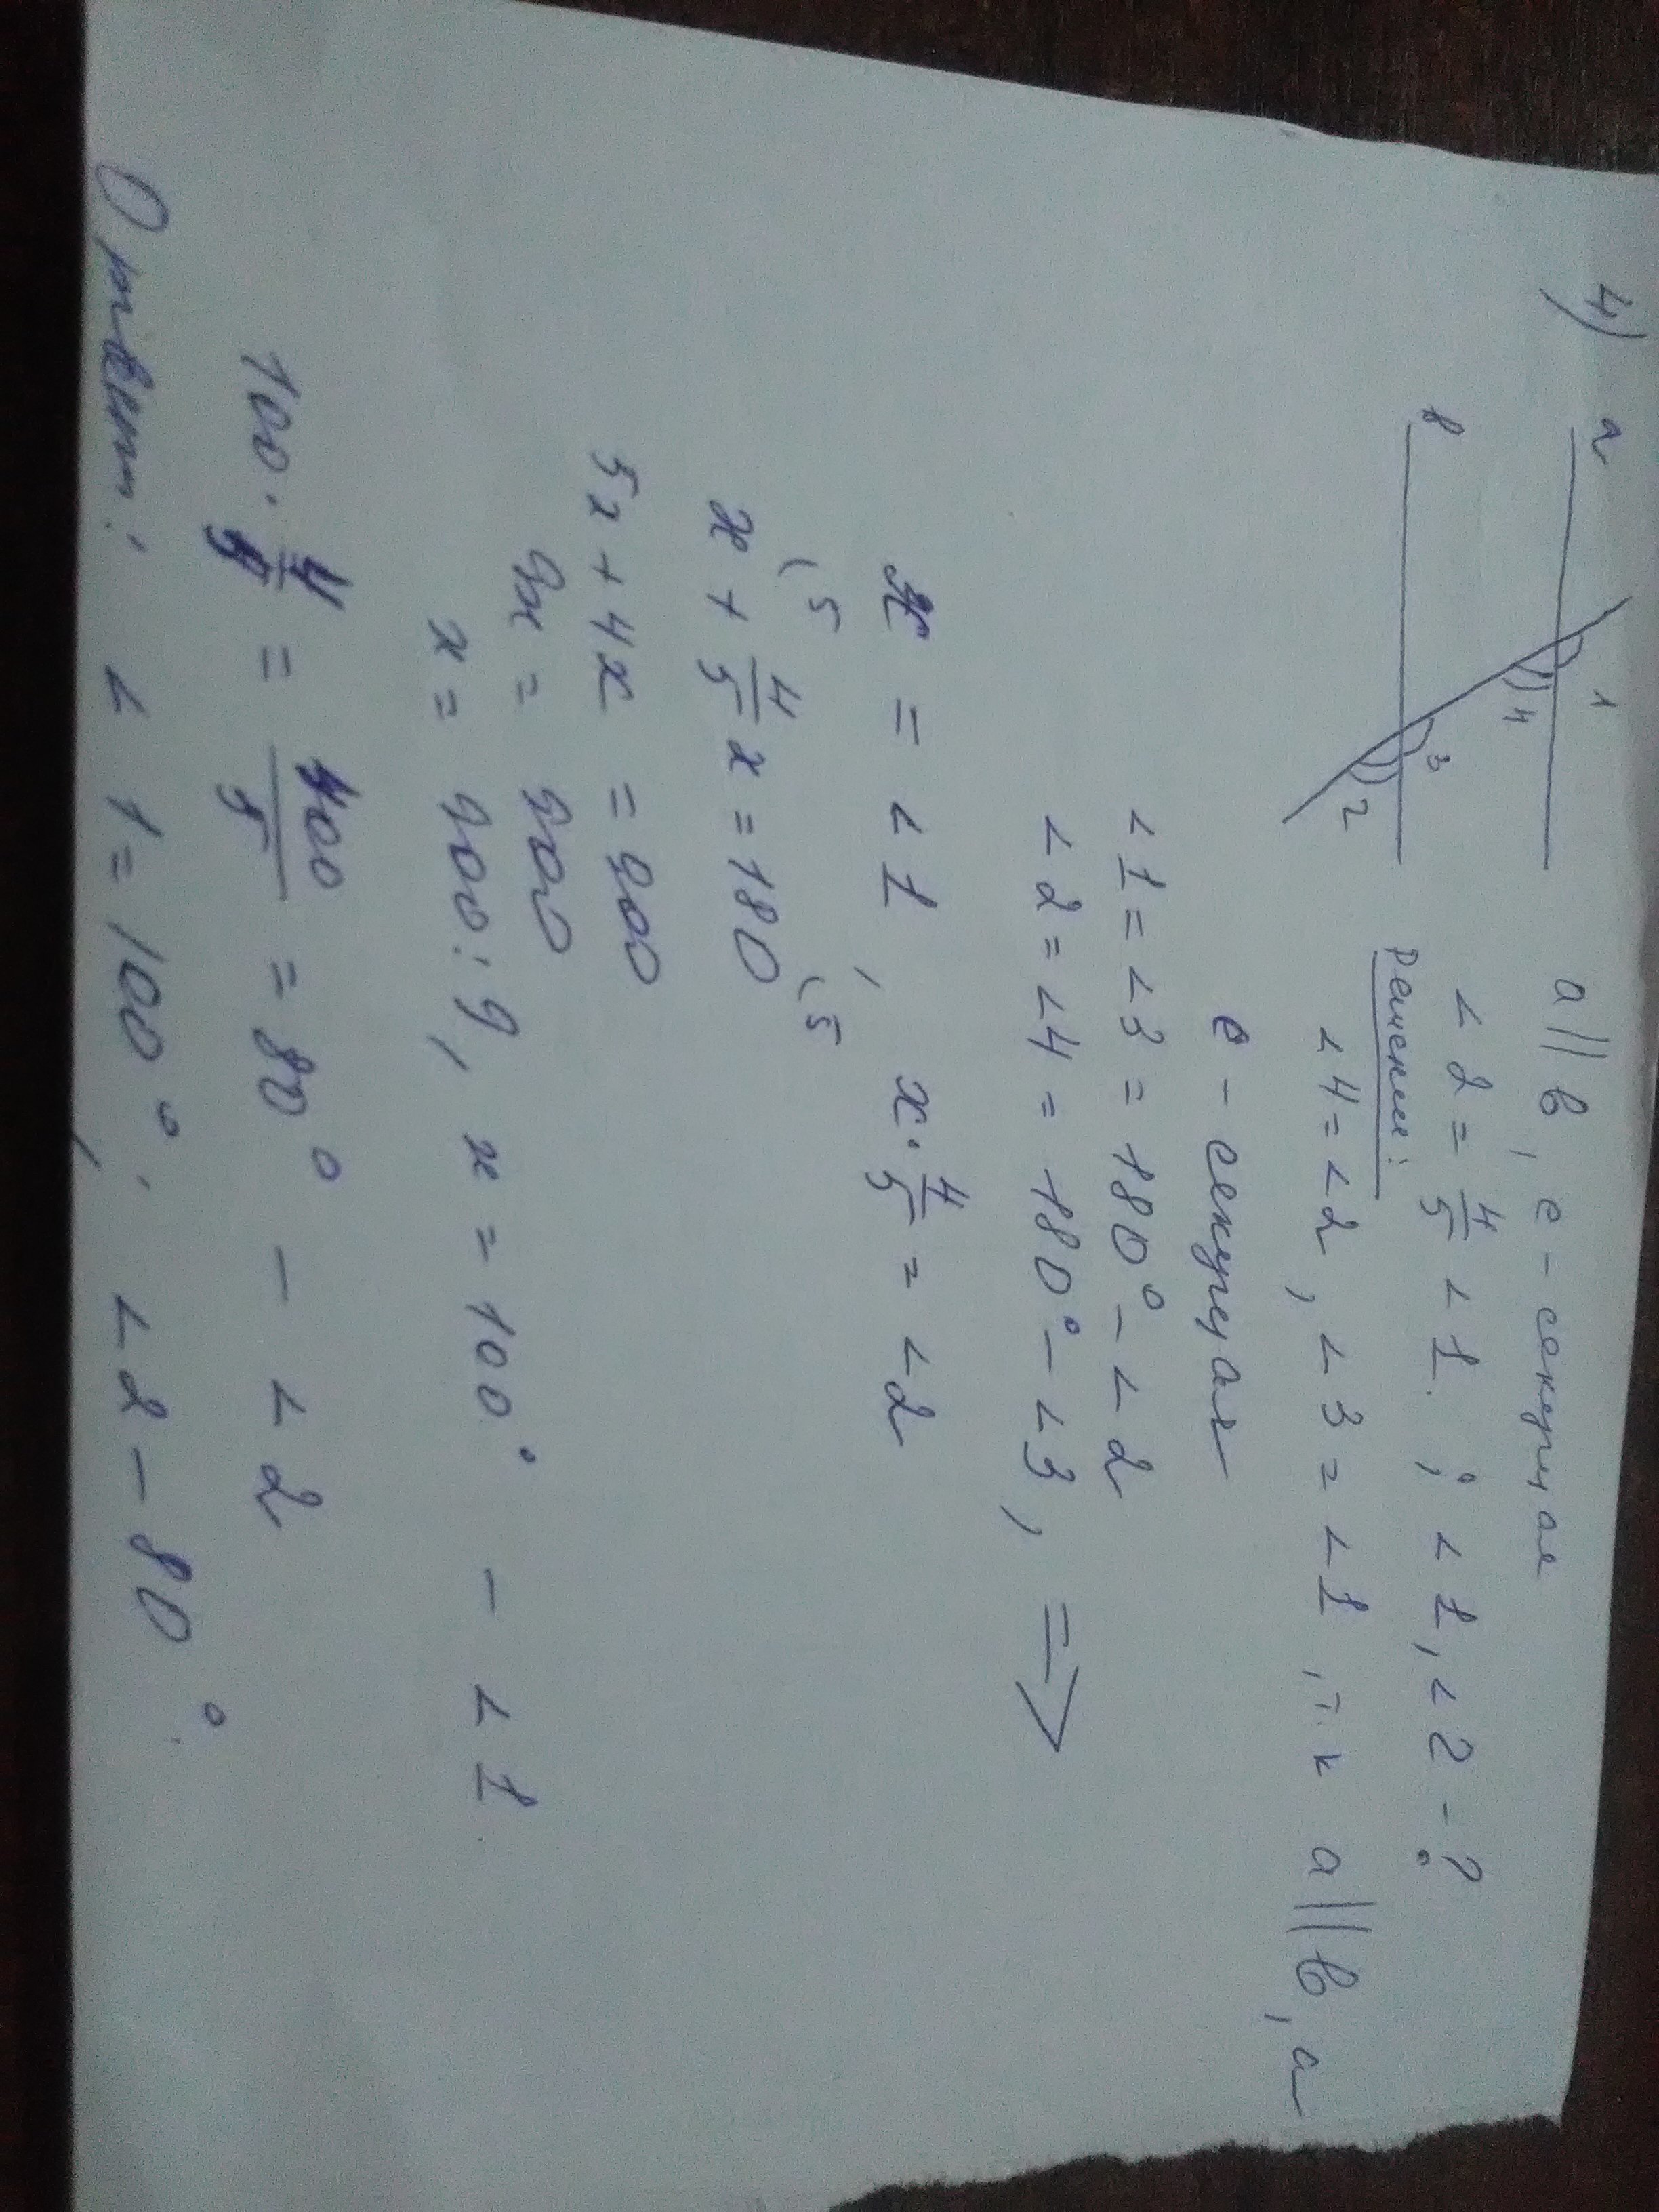 4)
a
в
1
4
3
2
a || в, е - секущая
∠2 = 4/5 ∠1 ; ∠1, ∠2 - ?
Решение:
∠4 = ∠2, ∠3 = ∠1, т.к a || в, а
е - секущая
∠1 = ∠3 = 180° - ∠2
∠2 = ∠4 = 180° - ∠3, ⇒
x = ∠1, x · 4/5 = ∠2
(5 (5
x + 4/5 x = 180
5x + 4x = 900
9x = 900
x = 900 : 9, x = 100° - ∠1
100 · 4/5 = 400/5 = 80° - ∠2
Ответ: ∠1 = 100°, ∠2 - 80°.